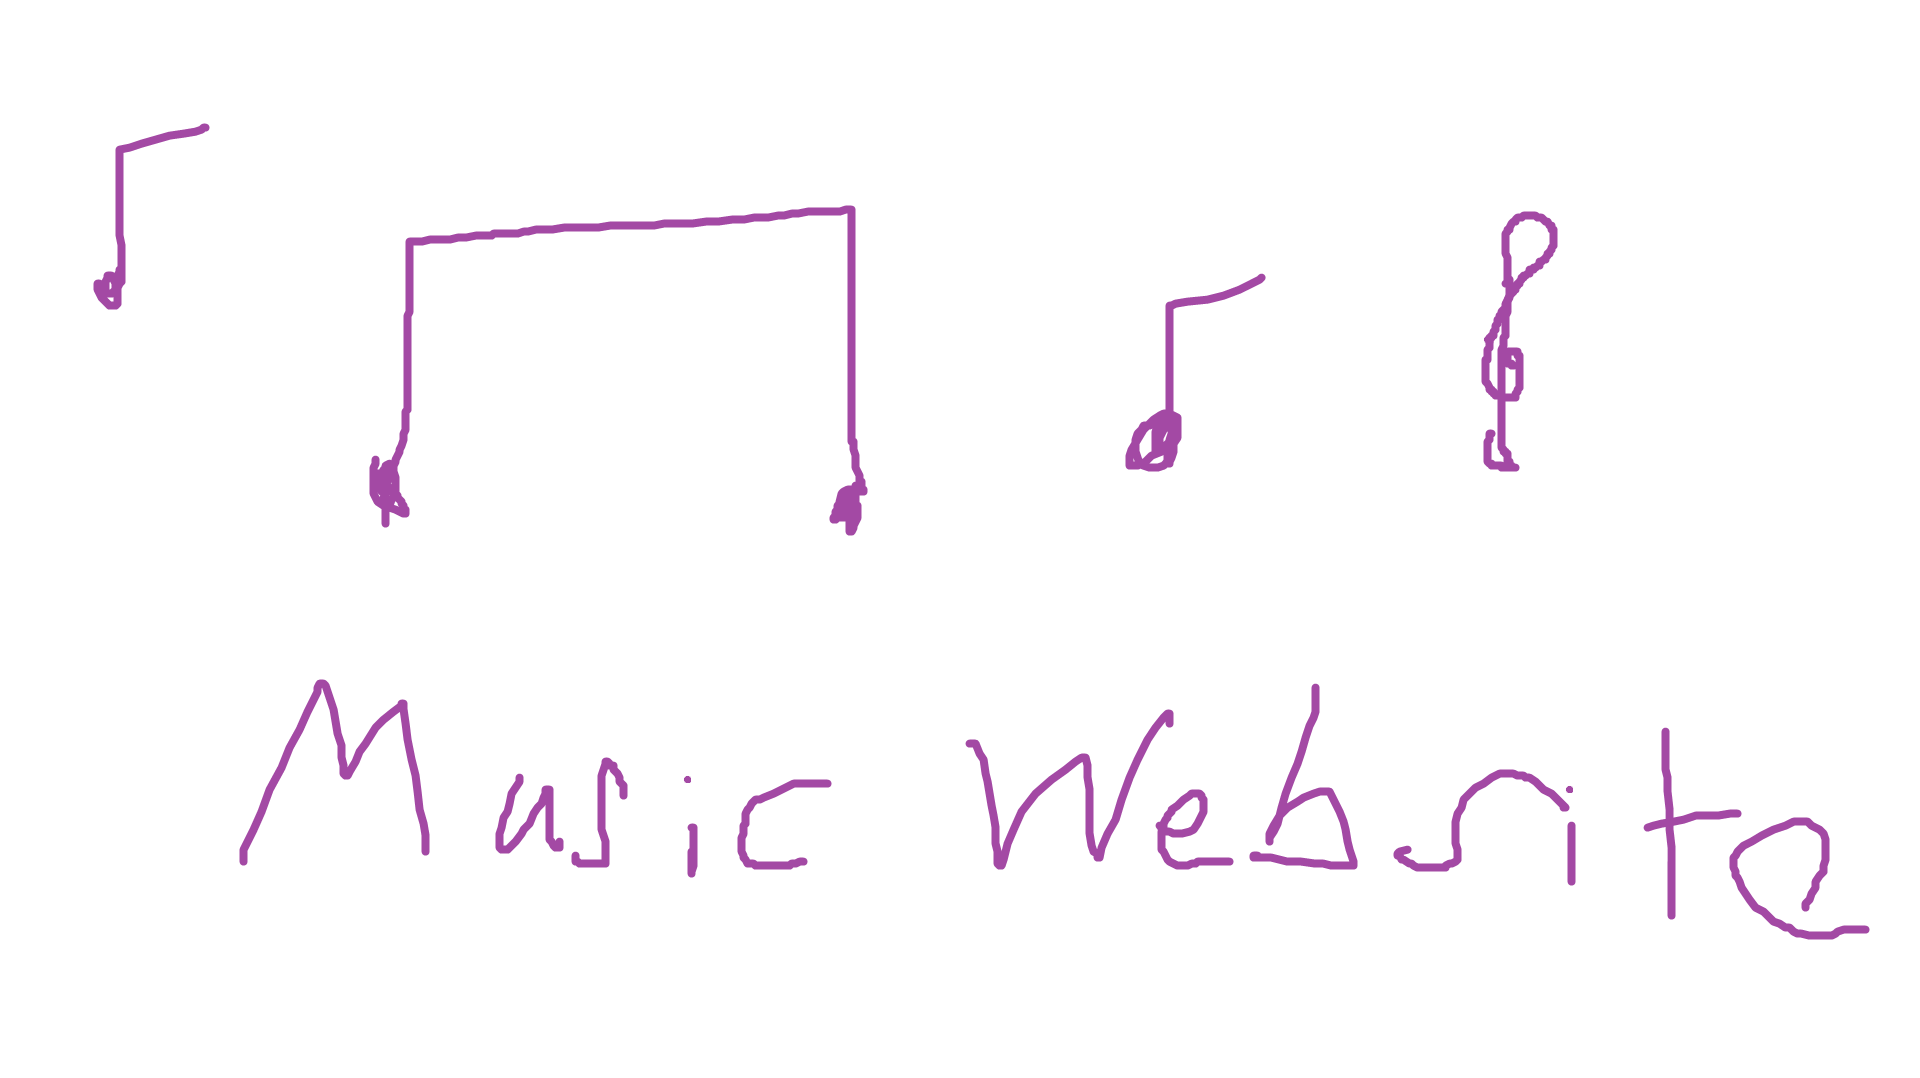 Music Website